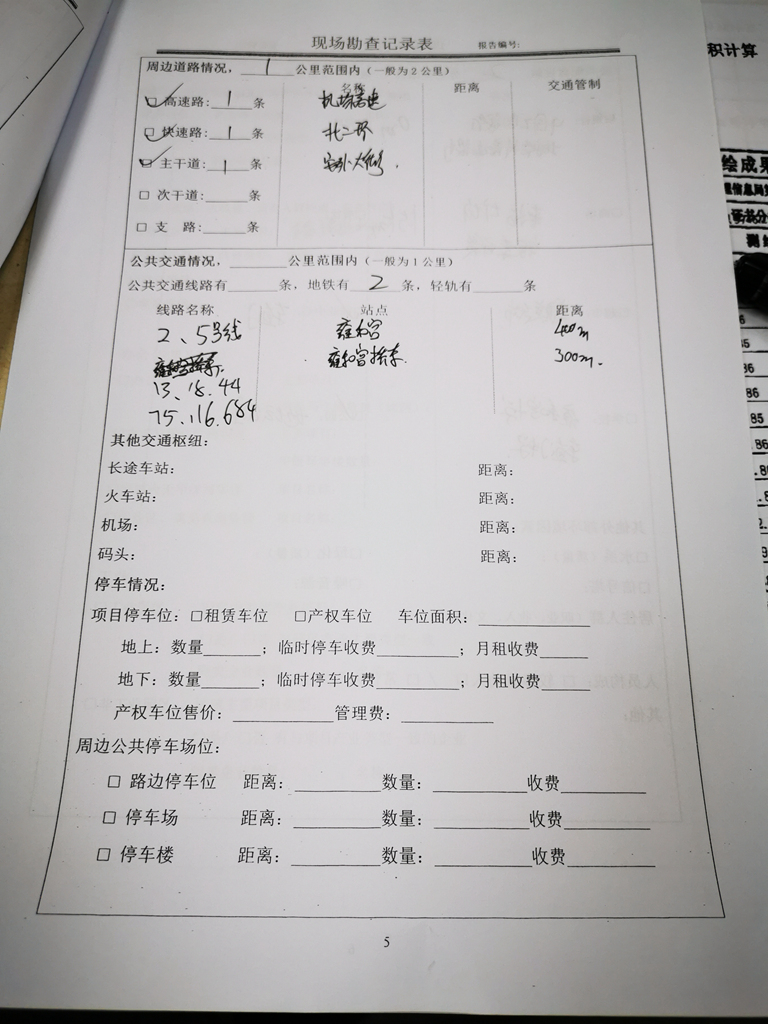 现场勘查记录表 报告编号:
周边道路情况, 1 公里范围内(一般为2公里)
名称 距离 交通管制
☑ 高速路: 1 条 机场高速
☑ 快速路: 1 条 北二环
☑ 主干道: 1 条 安外大街.
□ 次干道:______条
□ 支 路:______条
公共交通情况,______公里范围内(一般为1公里)
公共交通线路有______条, 地铁有 2 条, 轻轨有______条
线路名称 站点 距离
2、5号线 雍和宫 400m
雍和宫桥东. 300m.
13、18、44
75、116、684
其他交通枢纽:
长途车站: 距离:
火车站: 距离:
机场: 距离:
码头: 距离:
停车情况:
项目停车位: □租赁车位 □产权车位 车位面积:____________
地上: 数量______; 临时停车收费_________; 月租收费_____
地下: 数量______; 临时停车收费_________; 月租收费_____
产权车位售价:___________管理费:__________
周边公共停车场位:
□ 路边停车位 距离:_________数量:_________收费_________
□ 停车场 距离:_________数量:_________收费_________
□ 停车楼 距离:_________数量:_________收费_________
5
积计算
绘成果